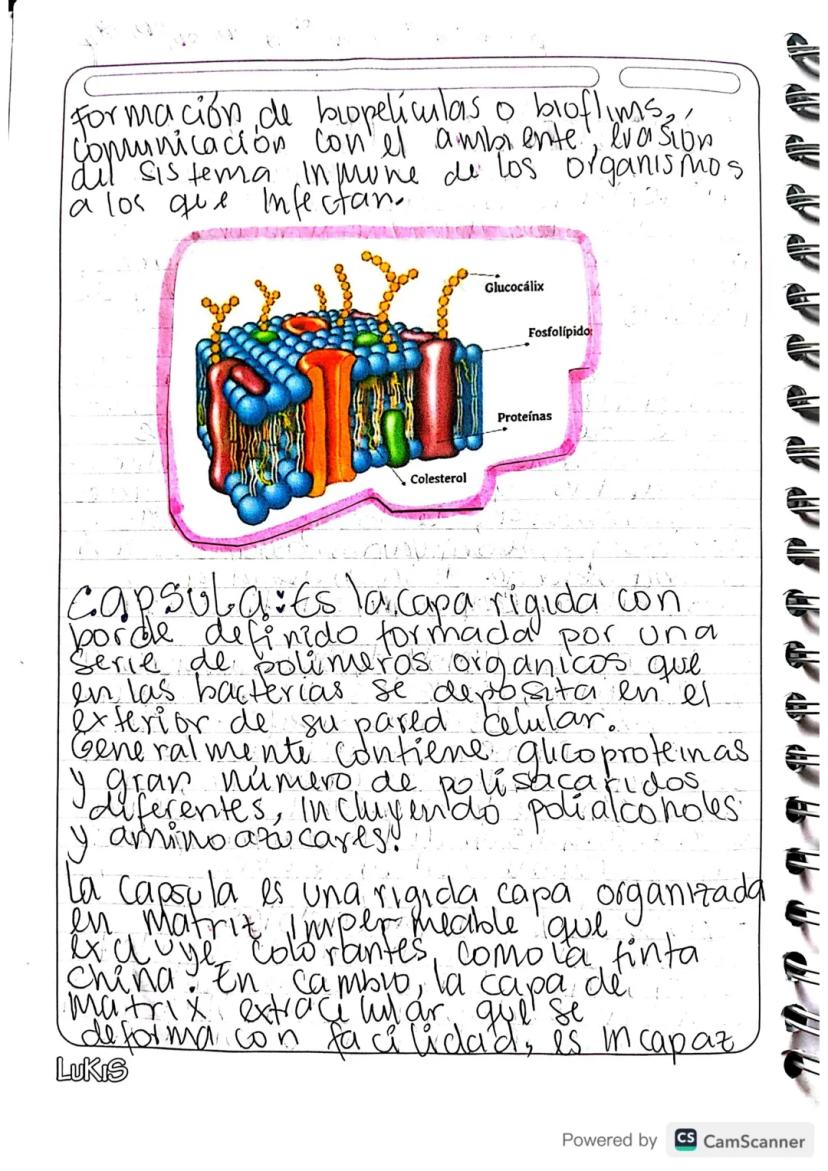 Formación de biopelículas o bioflims,
comunicación con el ambiente, evasión
del sistema inmune de los organismos
a los que infectan.
Glucocálix
Fosfolípido
Proteínas
Colesterol
Capsula: Es la capa rigida con
borde definido formada por una
serie de polimeros organicos que
en las bacterias se deposita en el
exterior de su pared celular.
Generalmente contiene glicoproteinas
y gran número de polisacaridos
diferentes, incluyendo polialcoholes
y aminoazucares.
La capsula es una rigida capa organizada
en matriz impermeable que
excluye colorantes como la tinta
china. En cambio, la capa de
matrix extracelular que se
deforma con facilidad, es incapaz
LUKIS
Powered by CS CamScanner